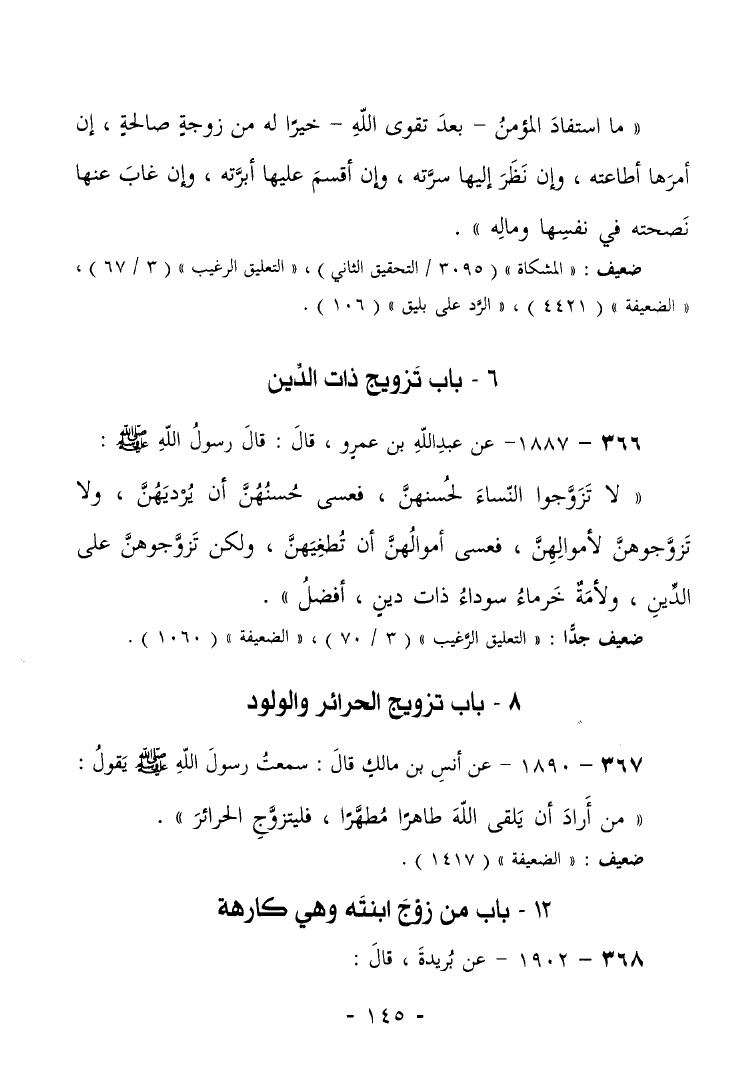 « ما استفادَ المؤمنُ – بعدَ تقوى اللَّهِ – خيرًا له من زوجةٍ صالحةٍ ، إن
أمرَها أطاعته ، وإن نَظَرَ إليها سرَّته ، وإن أقسمَ عليها أبرَّته ، وإن غابَ عنها
نَصحته في نفسِها ومالِه » .
ضعيف : « المشكاة » ( ٣٠٩٥ / التحقيق الثاني ) ، « التعليق الرغيب » ( ٣ / ٦٧ ) ،
« الضعيفة » ( ٤٤٢١ ) ، « الرَّد على بليق » ( ١٠٦ ) .
٦ - باب تَزويج ذات الدِّين
٣٦٦ – ١٨٨٧– عن عبدِاللَّهِ بن عمرٍو ، قالَ : قالَ رسولُ اللَّهِ ﷺ :
« لا تَزَوَّجوا النّساءَ لحُسنهنَّ ، فعسى حُسنُهُنَّ أن يُرْديَهُنَّ ، ولا
تَزوَّجوهنَّ لأموالِهِنَّ ، فعسى أموالُهنَّ أن تُطغِيَهنَّ ، ولكن تَزوَّجوهنَّ على
الدِّينِ ، ولأمَةٌ خَرماءُ سوداءُ ذات دينٍ ، أفضلُ » .
ضعيف جدًّا : « التعليق الرَّغيب » ( ٣ / ٧٠ ) ، « الضعيفة » ( ١٠٦٠ ) .
٨ - باب تزويج الحرائر والولود
٣٦٧ – ١٨٩٠ – عن أنسِ بن مالكٍ قالَ : سمعتُ رسولَ اللَّهِ ﷺ يَقولُ :
« من أَرادَ أن يَلقى اللَّهَ طاهرًا مُطهَّرًا ، فليتزوَّجِ الحرائرَ » .
ضعيف : « الضعيفة » ( ١٤١٧ ) .
١٢ - باب من زوَّجَ ابنتَه وهي كارهة
٣٦٨ – ١٩٠٢ – عن بُريدةَ ، قالَ :
- ١٤٥ -